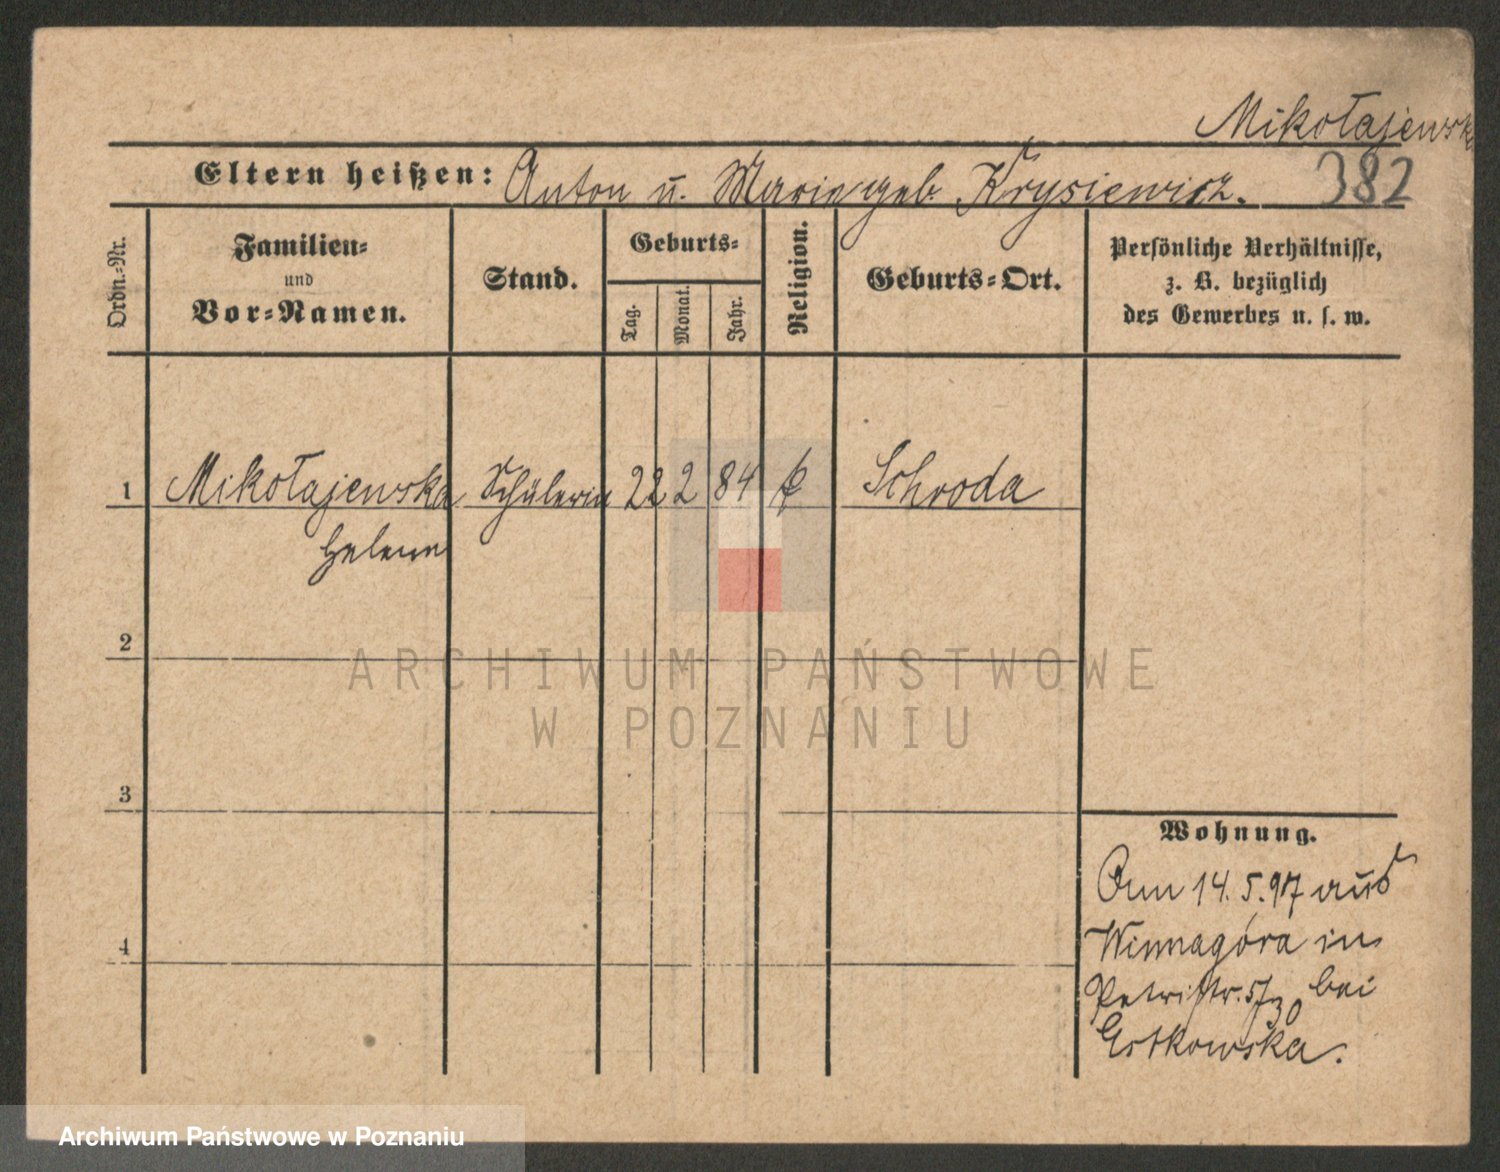 Mikołajewsk
Eltern heißen: Anton u. Marie geb. Krysiewicz. 382
Ordn.-Nr.
Familien-
und
Vor-Namen.
Stand.
Geburts-
Tag.
Monat.
Jahr.
Religion.
Geburts-Ort.
Persönliche Verhältnisse,
z. B. bezüglich
des Gewerbes u. s. w.
1 Mikołajewska Schülerin 22 2 84 k Schroda
Helene
2
ARCHIWUM PAŃSTWOWE
W POZNANIU
3
Wohnung.
14. 5. 97 aus
4
Winnagóra in
Petristr. bei
Estkowska.
Archiwum Państwowe w Poznaniu